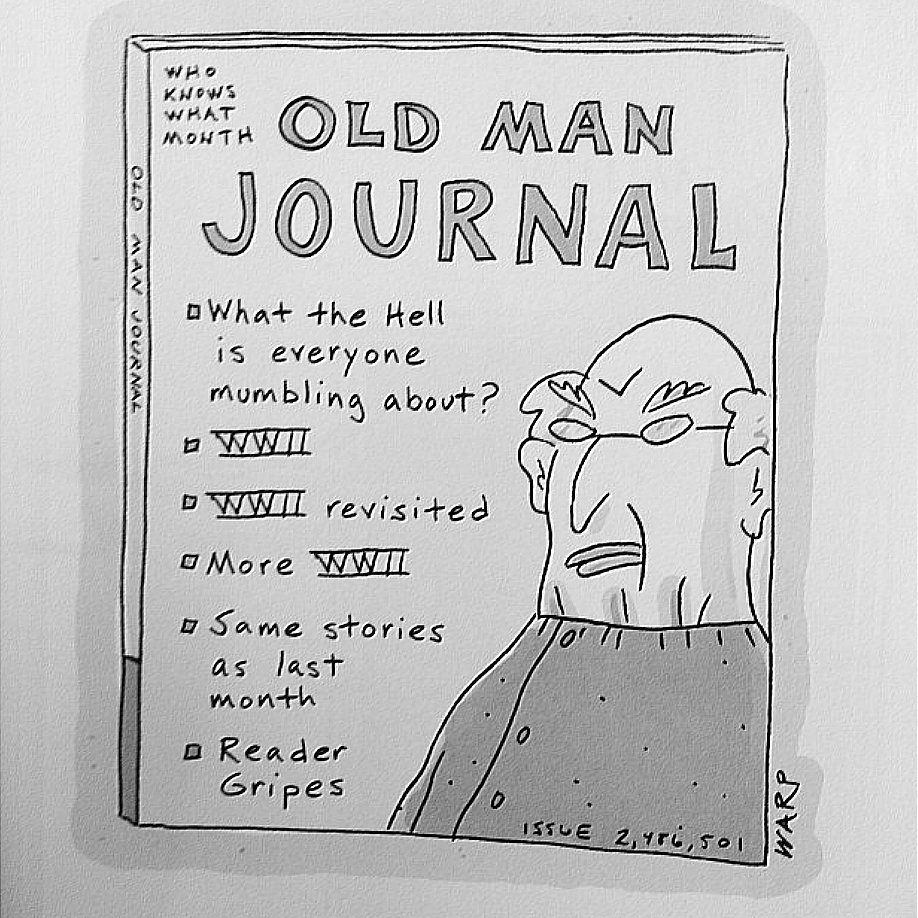 WHO
KNOWS
WHAT
MONTH
OLD MAN
JOURNAL
OLD MAN JOURNAL
What the Hell
is everyone
mumbling about?
WWII
WWII revisited
More WWII
Same stories
as last
month
Reader
Gripes
ISSUE 2,486,501
WARP